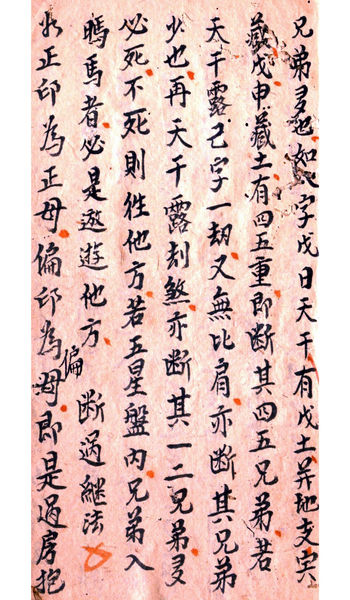 兄弟多也如八字戊日天干有戊土并地支寅
藏戊申藏土有四五重即断其四五兄弟若
天干露己字一刼又無比肩亦断其兄弟
少也再天干露刼煞亦断其一二兄弟多
必死不死則徃他方若五星盤内兄弟入
馬者必是遨遊他方 断過継法
如正印為正母偏印為偏母即是過房抱